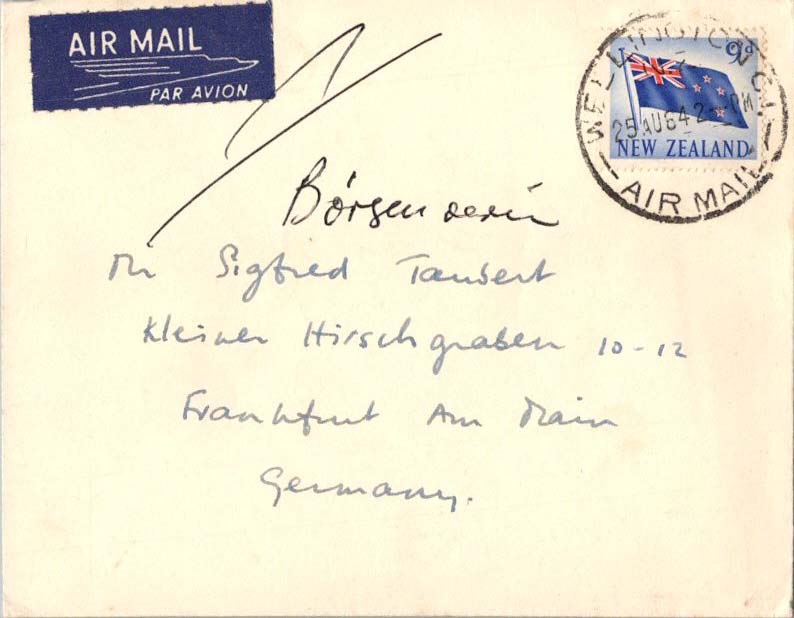 AIR MAIL
PAR AVION
9d
NEW ZEALAND
WELLINGTON C.1
25 AU 64 2 - PM
AIR MAIL
Börsenverein
Mr Sigfred Taubert
Kleiner Hirschgraben 10-12
Frankfurt Am Main
Germany.